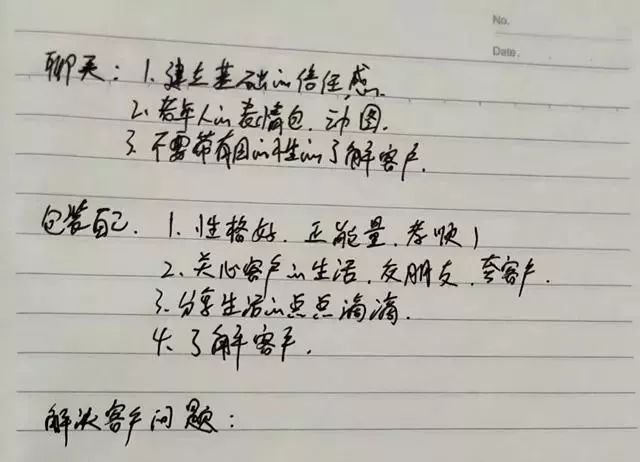 No.
Date.
聊天：1. 建立基础的信任感.
2. 老年人的表情包. 动图.
3. 不要带有目的性的了解客户.
包装自己. 1. 性格好. 正能量. 孝顺
2. 关心客户的生活. 交朋友. 夸客户.
3. 分享生活的点点滴滴.
4. 了解客户.
解决客户问题：